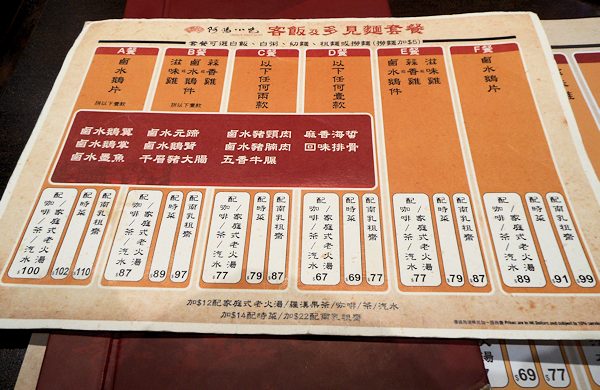 阿鴻小吃 客飯及多見麵套餐
套餐可選白飯、白粥、幼麵、粗麵或撈麵(撈麵加$5)
A餐 B餐 C餐 D餐 E餐 F餐
鹵水鵝片
拼以下壹款
滋味雞
蒜香雞
鹵水鵝件
拼以下壹款
以下任何兩款
以下任何壹款
滋味雞
蒜香雞
鹵水鵝件
鹵水鵝片
鹵水鵝翼 鹵水元蹄 鹵水豬頸肉 麻香海蜇
鹵水鵝掌 鹵水鵝腎 鹵水豬腩肉 回味排骨
鹵水墨魚 千層豬大腸 五香牛腱
配/家庭式老火湯/咖啡/茶/汽水 $100
配時菜 $102
配南乳粗齋 $110
配/家庭式老火湯/咖啡/茶/汽水 $87
配時菜 $89
配南乳粗齋 $97
配/家庭式老火湯/咖啡/茶/汽水 $77
配時菜 $79
配南乳粗齋 $87
配/家庭式老火湯/咖啡/茶/汽水 $67
配時菜 $69
配南乳粗齋 $77
配/家庭式老火湯/咖啡/茶/汽水 $77
配時菜 $79
配南乳粗齋 $87
配/家庭式老火湯/咖啡/茶/汽水 $89
配時菜 $91
配南乳粗齋 $99
加$12配家庭式老火湯/羅漢果茶/咖啡/茶/汽水
加$14配時菜/加$22配南乳粗齋
Prices are in HK Dollars and subject to 10% service
$69 $77